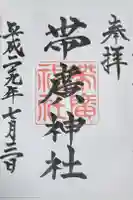 奉拝
帯廣神社
帯廣神社
平成二九年七月三日